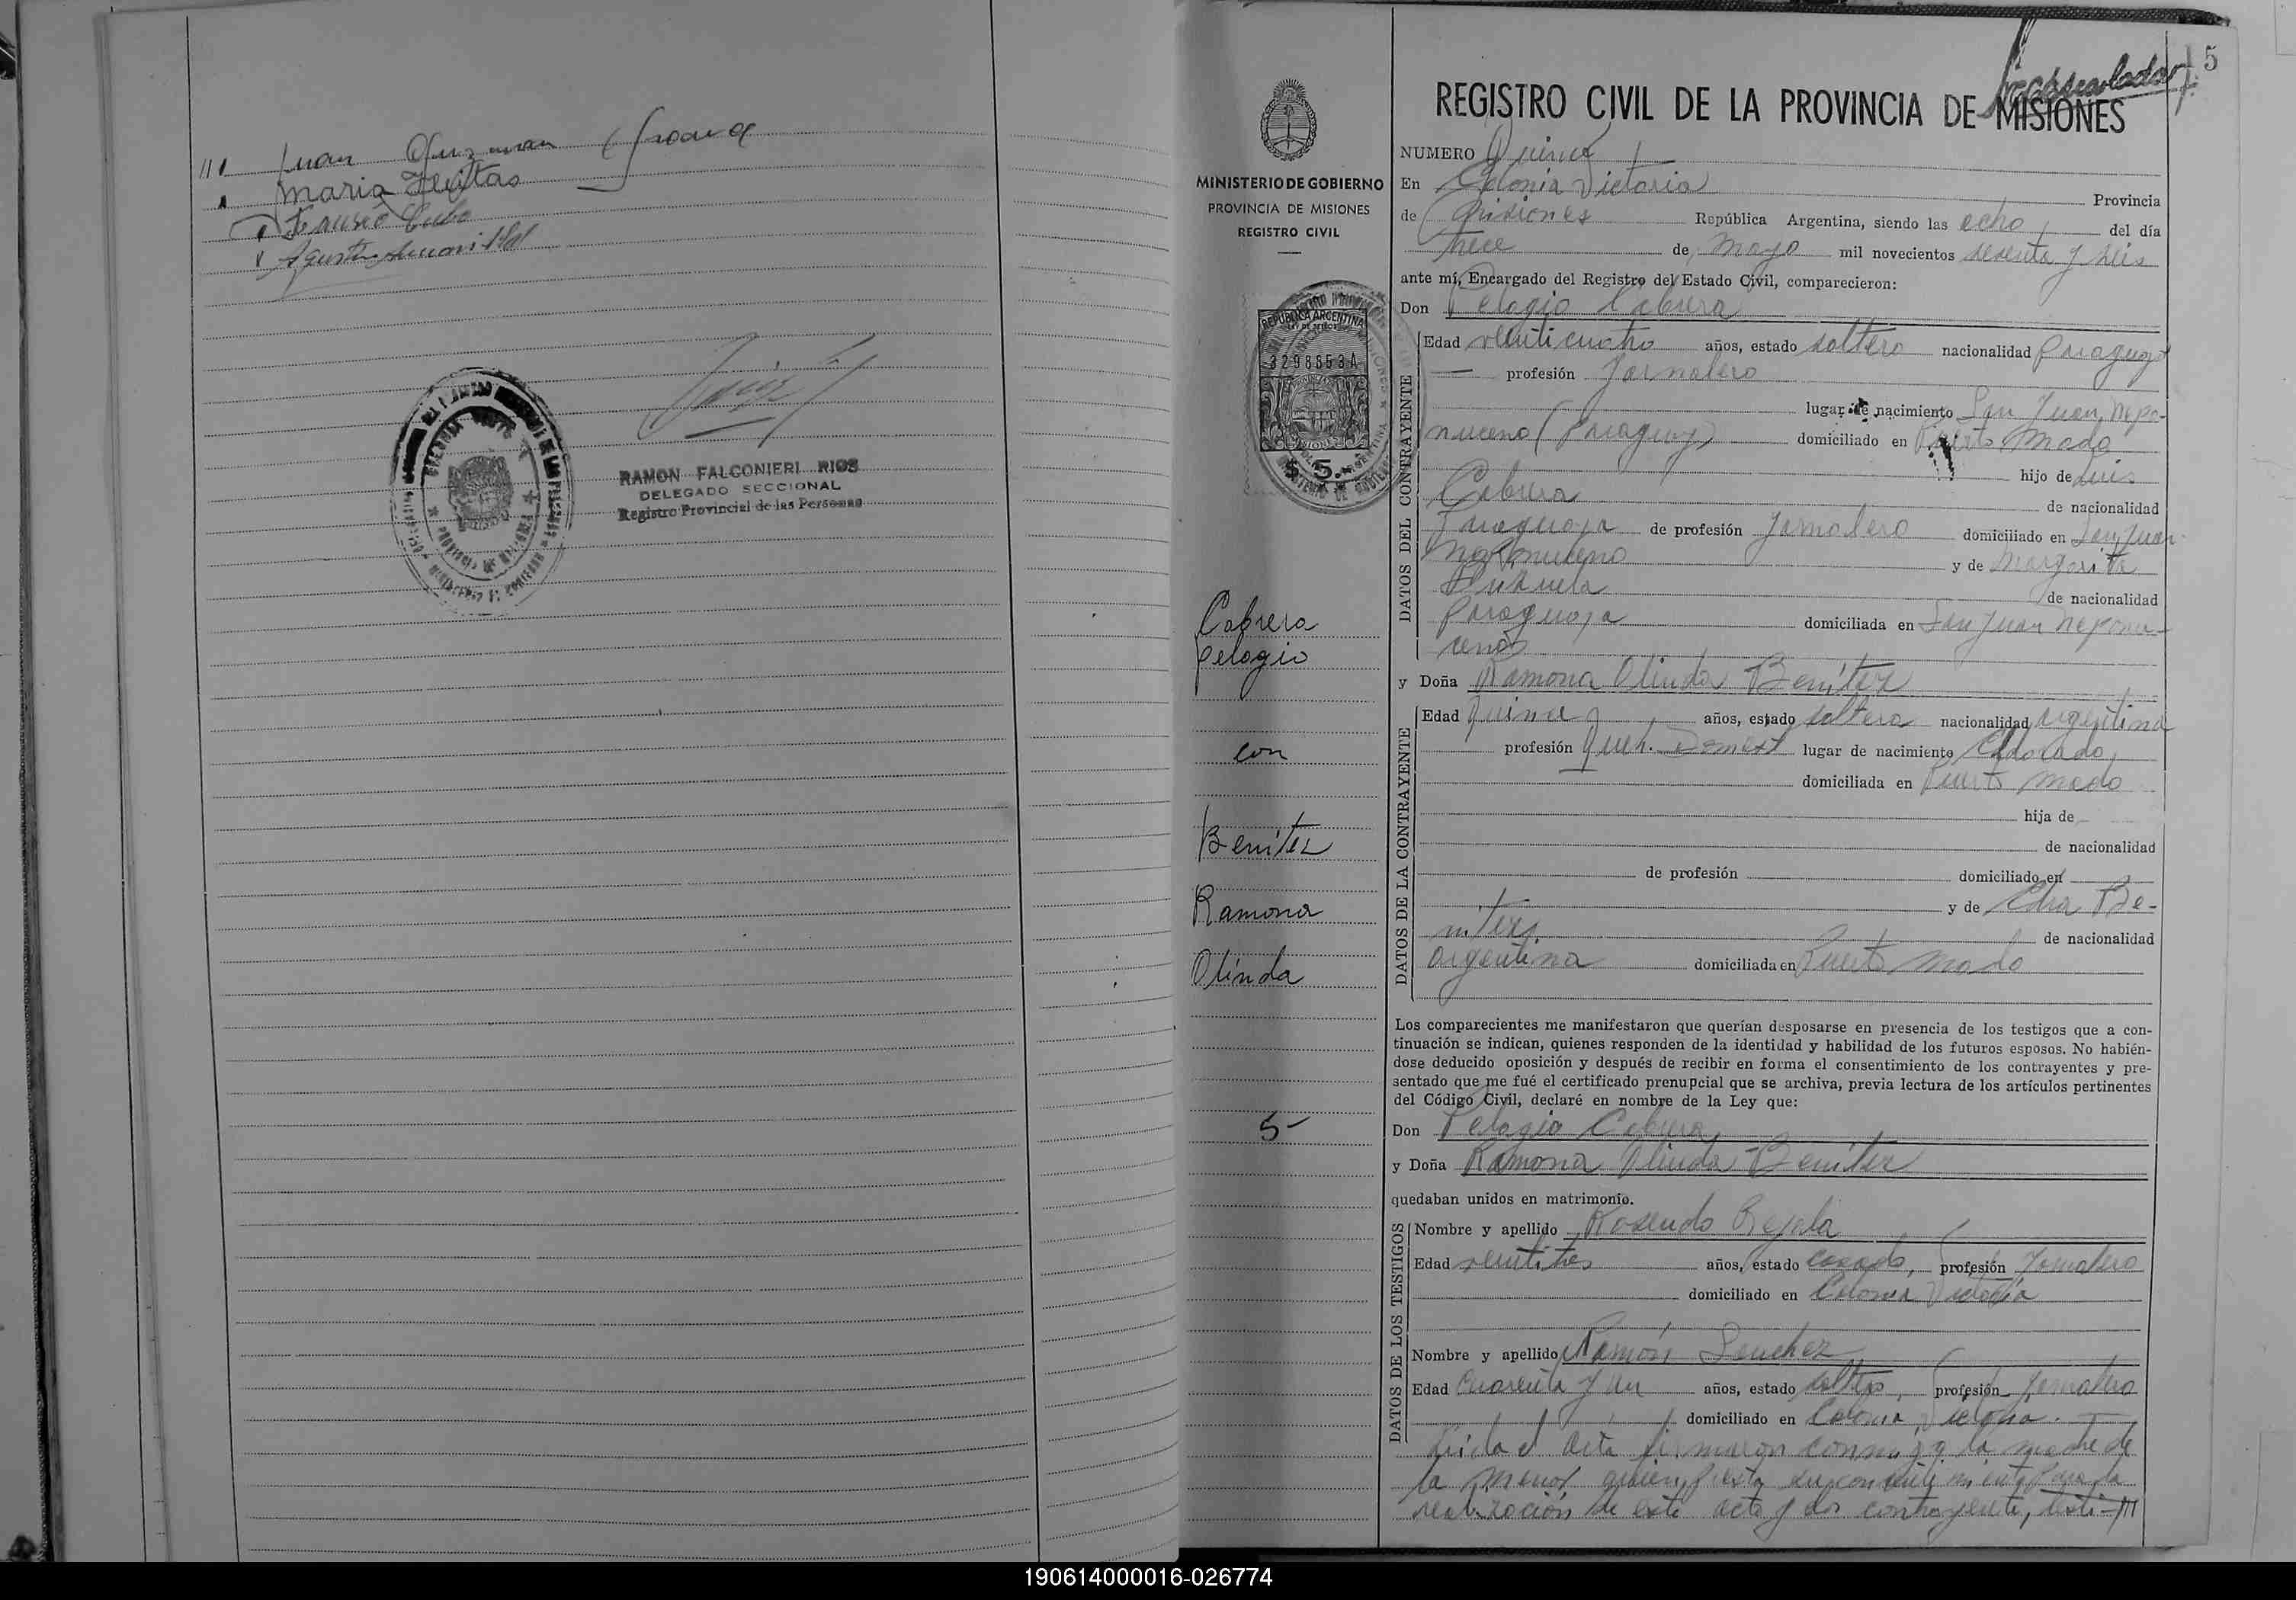 Juan Guzman
Maria Freitas
Agustin
RAMON FALCONIERI RIOS
DELEGADO SECCIONAL
Registro Provincial de las Personas
5
REGISTRO CIVIL DE LA PROVINCIA DE MISIONES
MINISTERIO DE GOBIERNO
PROVINCIA DE MISIONES
REGISTRO CIVIL
REPUBLICA ARGENTINA
3298853A
$ 5.-
Cabrera
Pelagio
con
Benitez
Ramona
Olinda
5-
NUMERO Quince
En Colonia Victoria Provincia
de Misiones República Argentina, siendo las ocho del día
trece de mayo mil novecientos sesenta y seis
ante mí, Encargado del Registro del Estado Civil, comparecieron:
Don Pelagio Cabrera
DATOS DEL CONTRAYENTE
Edad veinticuatro años, estado soltero nacionalidad Paraguaya
profesión Jornalero
lugar de nacimiento San Juan Nepo-
muceno (Paraguay) domiciliado en Puerto Mado
hijo de Luis
Cabrera de nacionalidad
Paraguaya de profesión Jornalero domiciliado en San Juan
Nepomuceno y de Margarita
de nacionalidad
Paraguaya domiciliada en San Juan Nepomu-
ceno
y Doña Ramona Olinda Benitez
DATOS DE LA CONTRAYENTE
Edad Quince años, estado soltera nacionalidad argentina
profesión Queh. Domest lugar de nacimiento Eldorado,
domiciliada en Puerto Mado
hija de
de nacionalidad
de profesión domiciliado en
y de Elsa Be-
nitez. de nacionalidad
argentina domiciliada en Puerto Mado
Los comparecientes me manifestaron que querían desposarse en presencia de los testigos que a con-
tinuación se indican, quienes responden de la identidad y habilidad de los futuros esposos. No habién-
dose deducido oposición y después de recibir en forma el consentimiento de los contrayentes y pre-
sentado que me fué el certificado prenupcial que se archiva, previa lectura de los artículos pertinentes
del Código Civil, declaré en nombre de la Ley que:
Don Pelagio Cabrera
y Doña Ramona Olinda Benitez
quedaban unidos en matrimonio.
DATOS DE LOS TESTIGOS
Nombre y apellido Rosendo Rejala
Edad veintitres años, estado casado, profesión Jornalero
domiciliado en Colonia Victoria
Nombre y apellido Ramón Sanchez
Edad cuarenta y un años, estado soltero, profesión Jornalero
domiciliado en Colonia Victoria.
Leida el acta firmaron conmigo la madre de
la menor quien presta su consentimiento para la
realización de este acto y los contrayente, testi-///
190614000016-026774